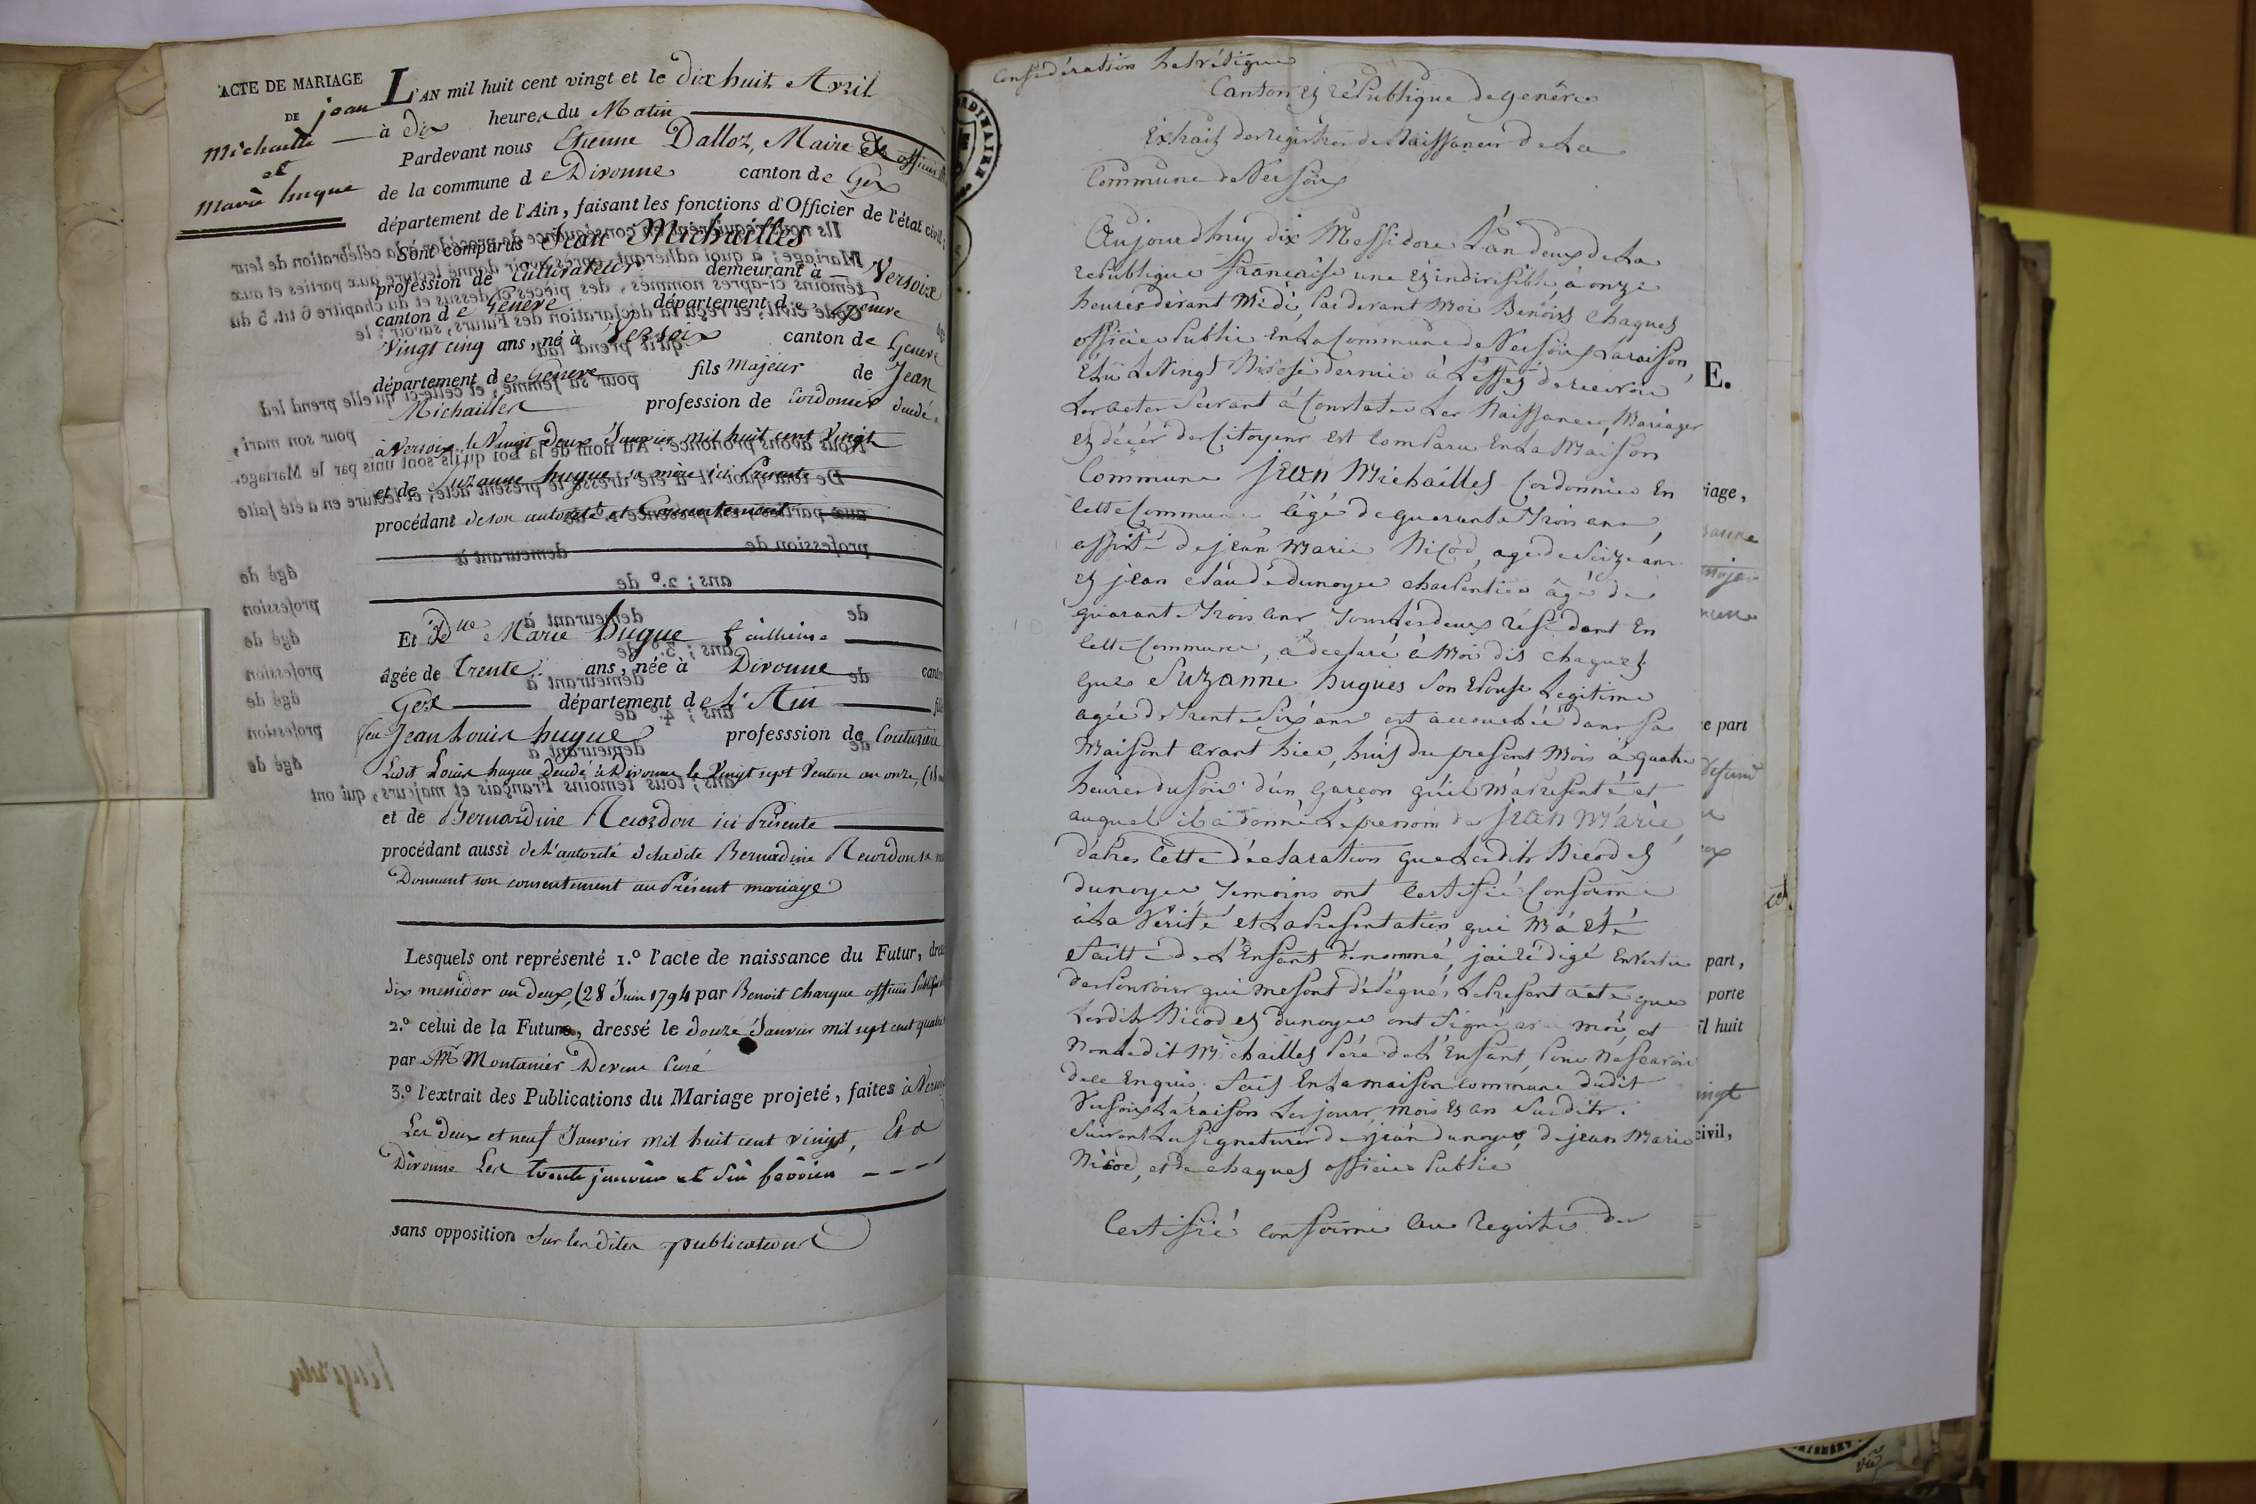 ACTE DE MARIAGE
DE jean
Michaille
et
Marie hugue
L'AN mil huit cent vingt et le dix huit Avril
à dix heures du Matin
Pardevant nous Etienne Dalloz, Maire et officier
de la commune de Divonne canton de Gex
département de l'Ain, faisant les fonctions d'Officier de l'état civil;
Sont comparus Jean Michailles
profession de Cultivateur demeurant à Versoix
canton de Genève département de Genève
Vingt cinq ans, né à Versoix canton de Geneve
département de Geneve fils Majeur de Jean
Michailles profession de Cordonier décédé
à Versoix le Vingt deux Janvier mil huit cent Vingt
et de Suzanne hugue sa mère ici Présente
procédant de son autorité et Consentement
Et Dlle Marie hugue
agée de trente ans, née à Divonne canton
Gex département de L'Ain fille
feu Jean Louis hugue professsion de Couturière
Ledit Louis hugue décédé à Divonne le Vingt sept Ventose an onze,
et de Bernardine Recordon ici Présente
procédant aussi de L'autorité de ladite Bernadine Recordon sa
Donnant son consentement au Présent mariage
Lesquels ont représenté 1.º l'acte de naissance du Futur, dressé
dix messidor an deux, (28 Juin 1794 par Benoit Chaque officier Public
2.º celui de la Future, dressé le douze Janvier mil sept cent quatre
par Mr Montanier Curé
3.º l'extrait des Publications du Mariage projeté, faites à Versoix
Les deux et neuf Janvier mil huit cent vingt, Et à
Divonne Les trente janvier et Six février
sans opposition sur les dites publications
Confédération helvétique
Canton et république de genêve
Extrait des registres de Naissances de La
Commune de Versoix
Aujourdhuy dix Messidore L'an deux de La
republique française une et indivisible à onze
heures devant Midi, Pardevant Moi Benoit Chaques
officier Public en La Commune de Versoix La raison,
élu le Vingt Nivose dernier à L'effet de recevoir
Les actes servant à Constater Les Naissances, Mariages
et décès des Citoyens est Comparu En La Maison
Commune jean Michailles Cordonnier En
cette Commune âgé de quarante trois ans
assisté de jean Marie Nicod, agé de seize ans
et jean claude dunoyer charpentier âgé de
quarante trois ans tous les deux résidant En
cette Commune, a déclaré à Moi dit chaques
que Suzanne hugues son épouse Legitime
agée de trente six ans est accouchée dans sa
Maison avant hier, huit du present Mois à quatre
heures du soir d'un garçon qu'il m'a présenté et
auquel il a donné Le prenom de jean Marie,
d'après cette déclaration que Lesdits Nicod et
dunoyer temoins ont certifié Conforme
à La Vérité et La présentation qui M'a eté
faitte de L'Enfant dénommé, j'ai rédigé En vertu
des Pouvoirs qui me sont délégués Le Present acte que
Lesdits Nicod et dunoyer ont signé avec moi, et
Non Ledit Michailles Père de L'Enfant, Pour Ne scavoir
de ce Enquis. fait En La maison commune dudit
Versoix La raison Les jour, mois et an susdits.
suivent Les signatures de jean dunoyer, de jean Marie
Nicod, et de chaques officier Public
Certifié conforme au registre
E.
riage,
e part
part,
porte
il huit
vingt
civil,